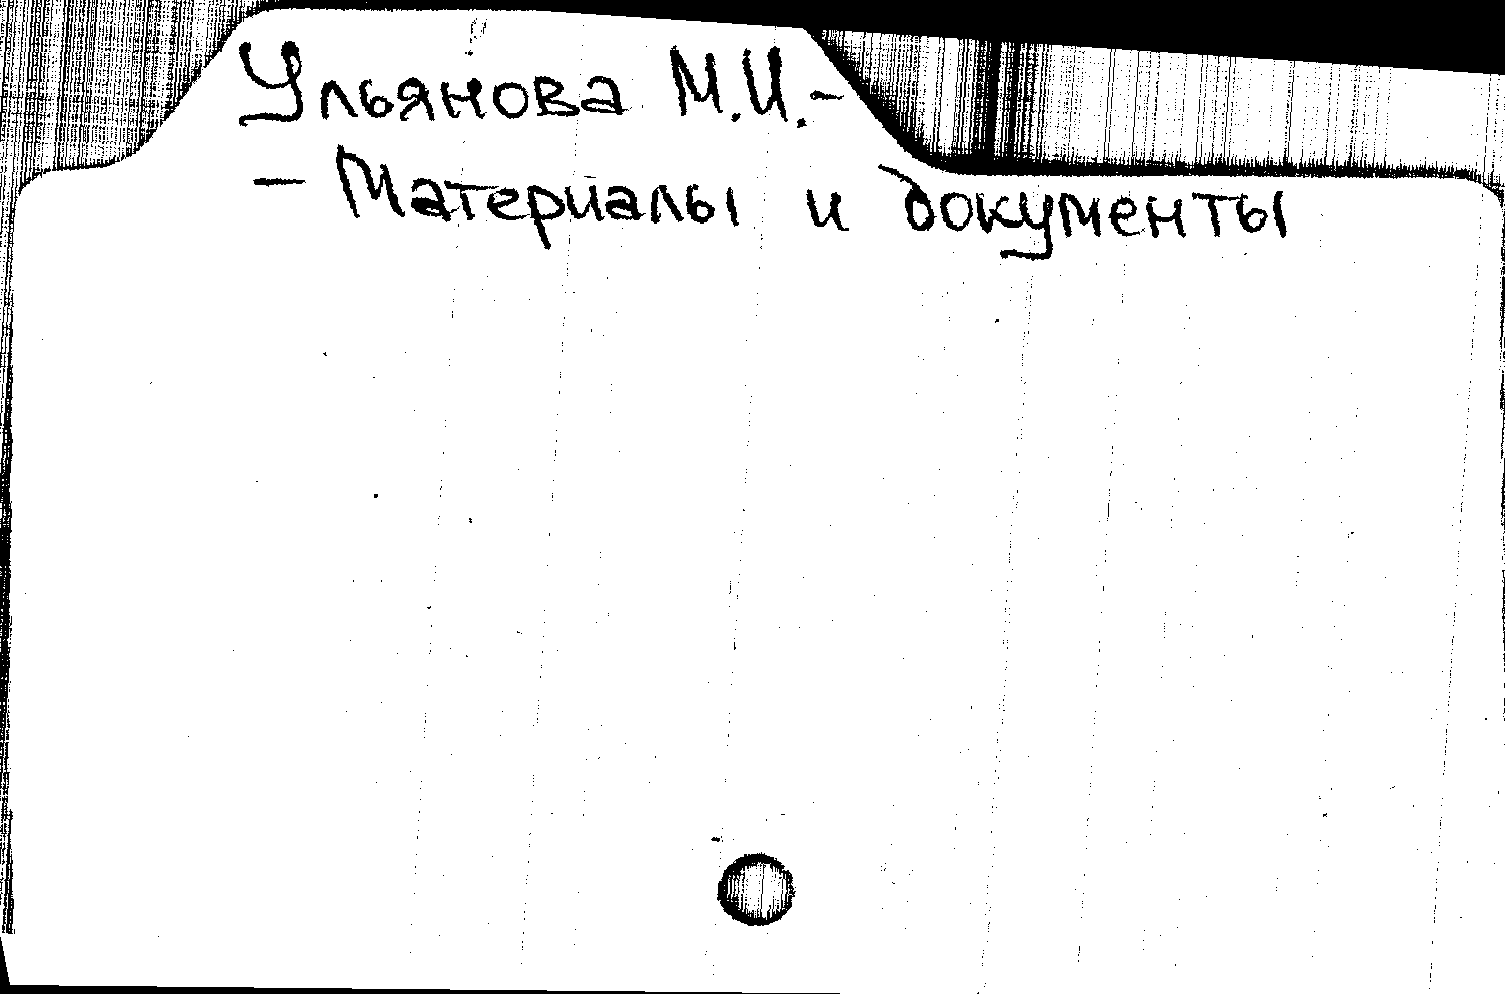 Ульянова М.И.-
- Материалы и документы